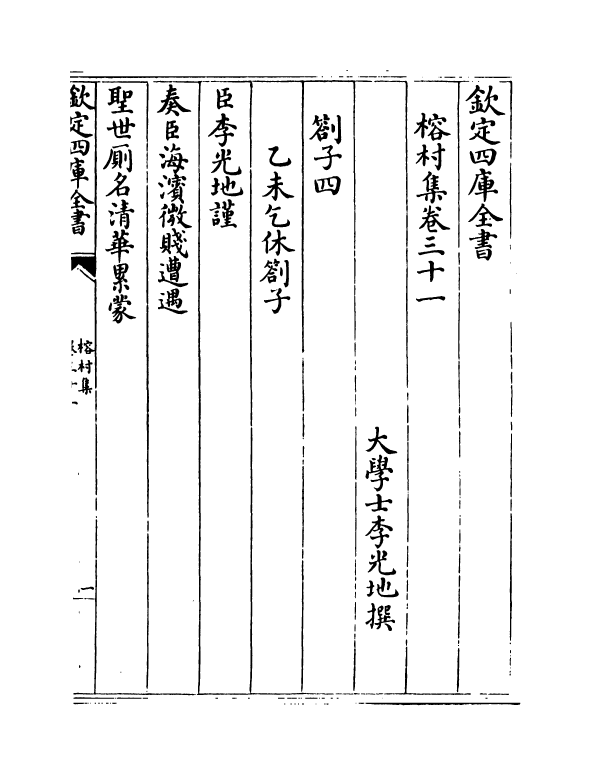 欽定四庫全書
榕村集卷三十一
大學士李光地撰
劄子四
乙未乞休劄子
臣李光地謹
奏臣海濱微賤遭遇
聖世厠名清華累蒙
欽定四庫全書
榕村集
卷三十一
一